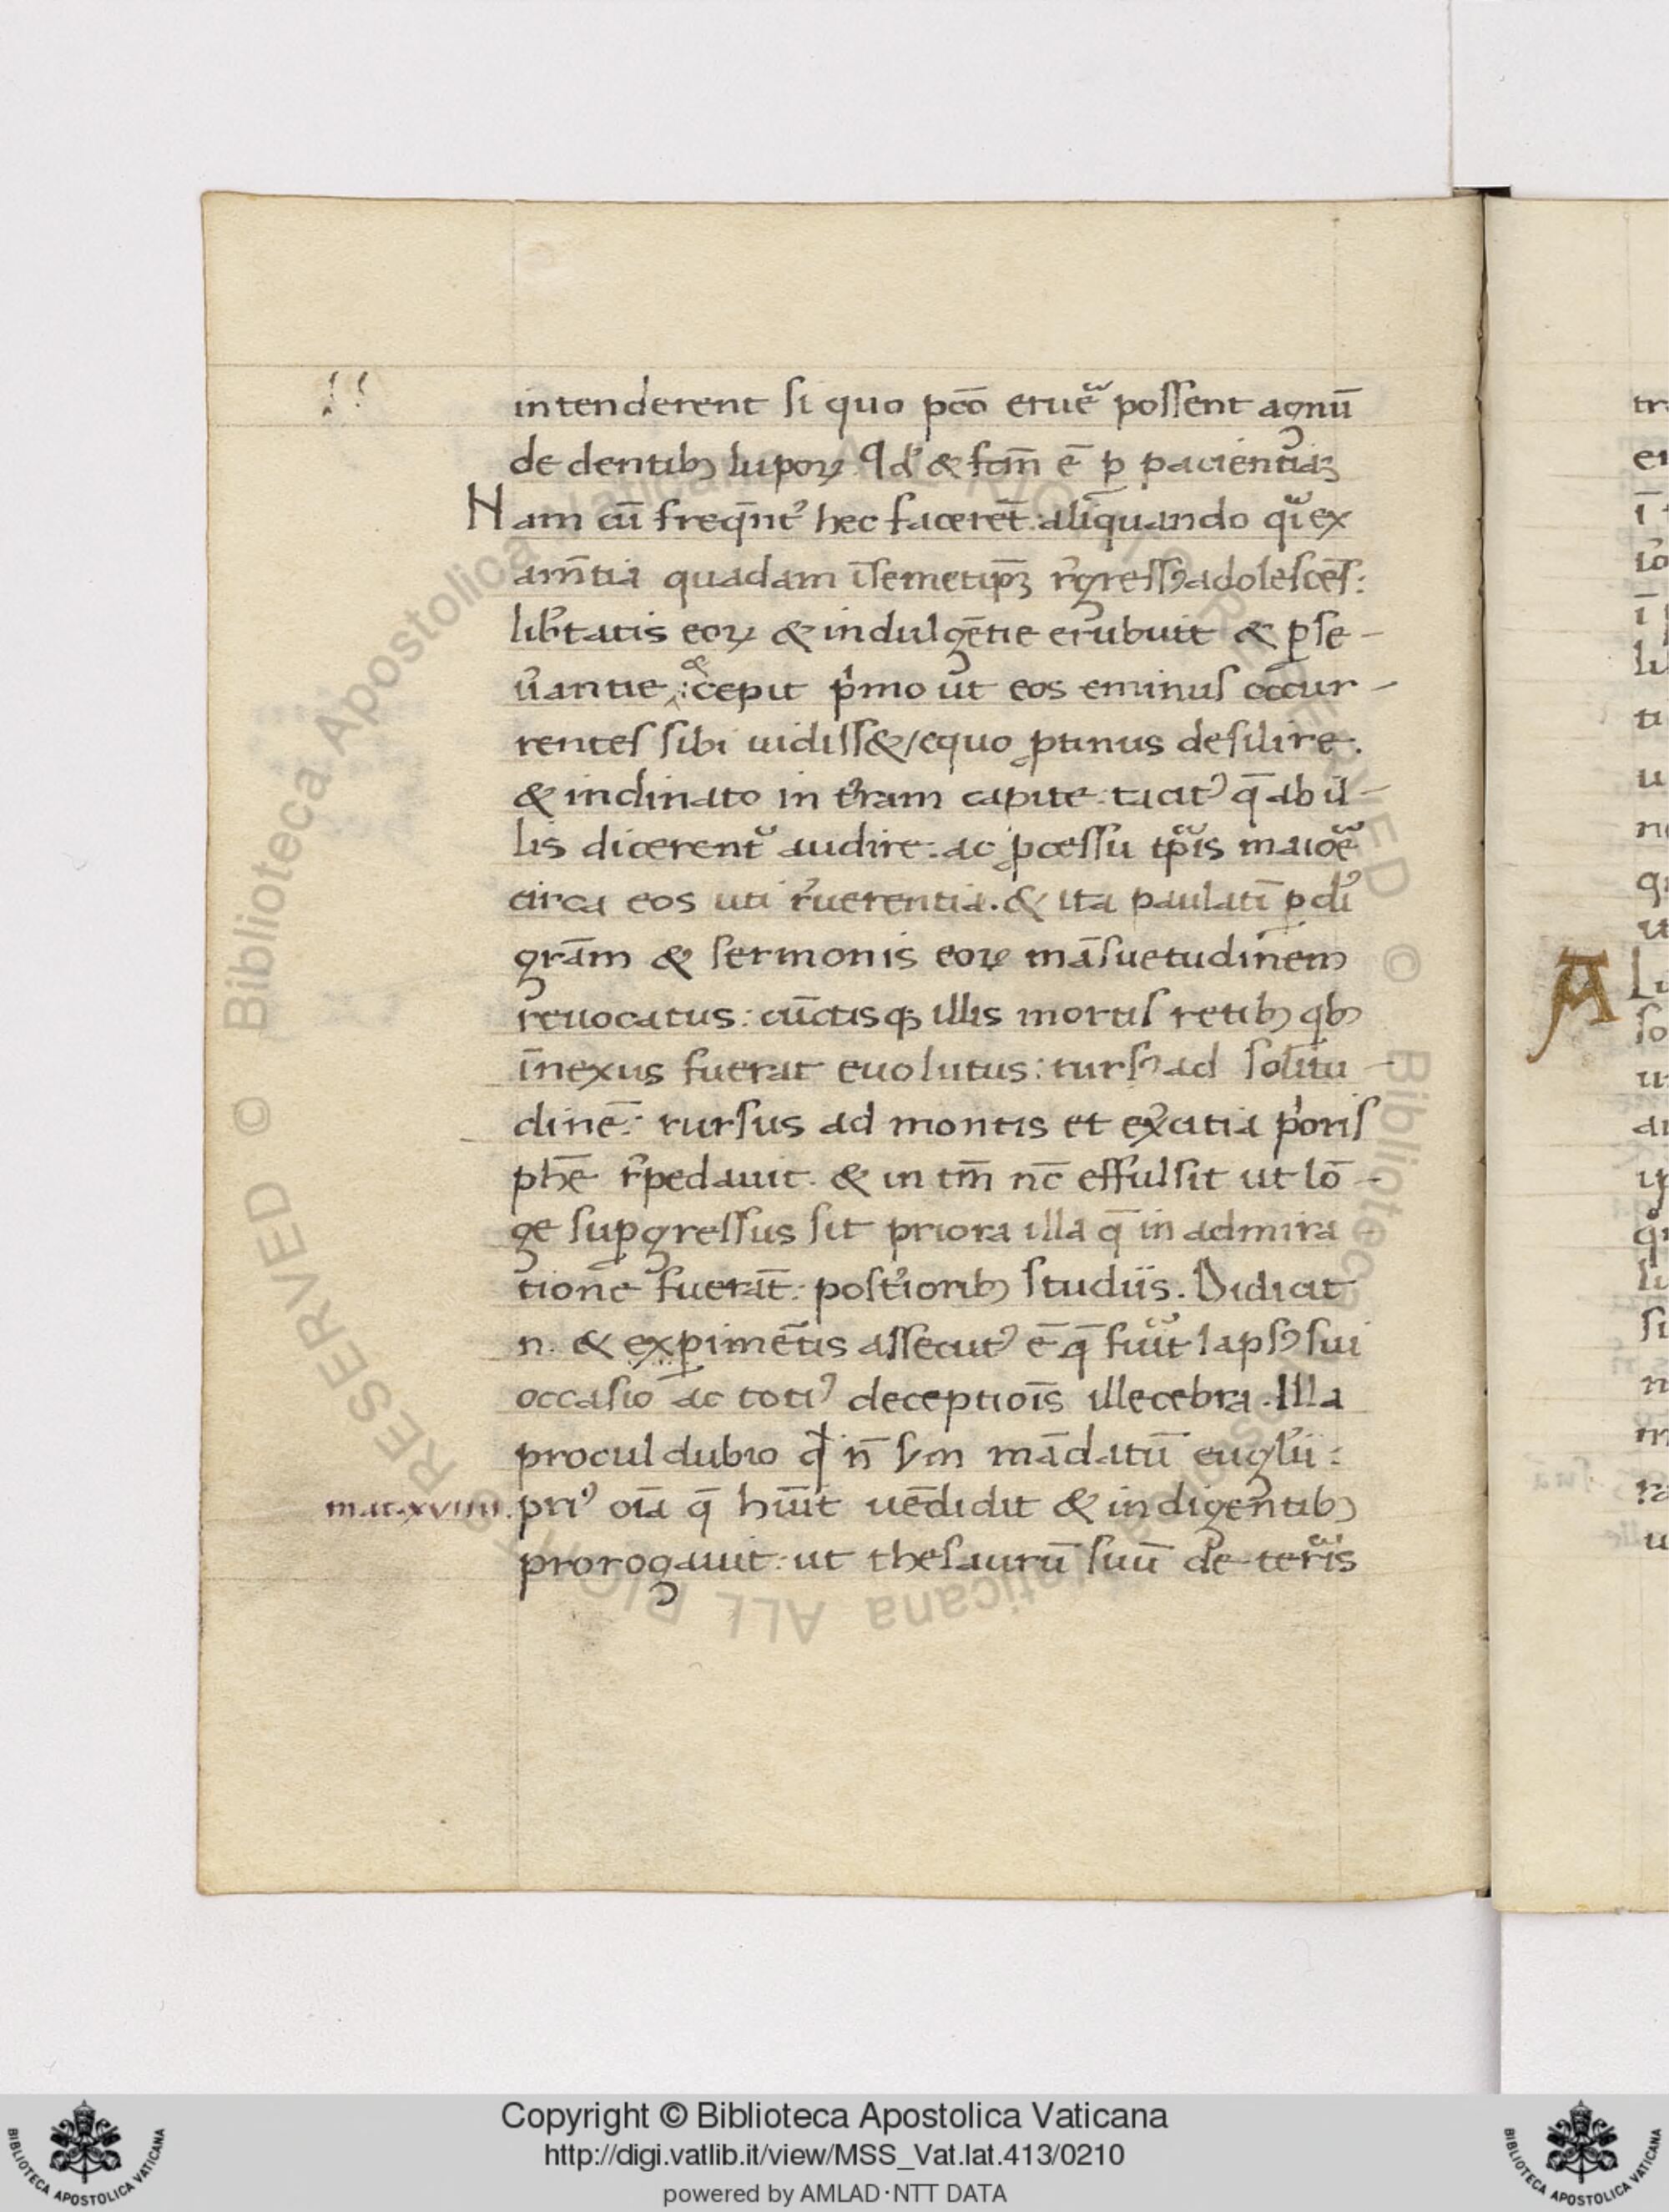 intenderent si quo pco̅ eruẽ possent agnū
de dentib; lupoꝝ. Qd' & fcm̅ ē ꝑ pacientiaꝫ
Nam cū freq̄nt' hec facerēt: aliquando qͣi ex
am̄tia quadam īsemetipꝫ r̓gressꝰ adolescēs:
lib̓tatis eoꝝ & indulgētie erubuit & ꝑse-
u̓antie,: & cepit p̓mo ut eos eminus occur-
rentes sibi uidiss& / equo ꝓtinus desilire.
& inclinato in t̓ram capite: tacitꝰ q̄ ab il-
lis dicerent᷑ audire: ac ꝓcessu tp̄is maioẽ
circa eos uti r̓uerentia. & ita paulatī ꝑ di
grām & sermonis eoꝝ māsuetudinem
reuocatus: cūctisqꝫ illis mortis retib; qb;
īnexus fuerat euolutus: rursꝰ ad solitu-
dinē: rursus ad montis et ex̓citia p̓oris
phe̅ r̓pedauit. & in tm̄ nc̄ effulsit ut lō-
ge suꝑgressus sit priora illa q̄ in admira
tione fuerāt: post̓iorib; studiis. Didicit
n. & exꝑimētis assecutꝰ ē q̄ fuũt lapsꝰ sui
occasio ac totiꝰ deceptiōis illecebra. Illa
procul dubio qd n̄ sm mādatū euglii:
mat. xviiii. priꝰ oīa q̄ hūit uēdidit & indigentib;
prorogauit: ut thesaurū suū de terris
Copyright © Biblioteca Apostolica Vaticana
http://digi.vatlib.it/view/MSS_Vat.lat.413/0210
powered by AMLAD·NTT DATA